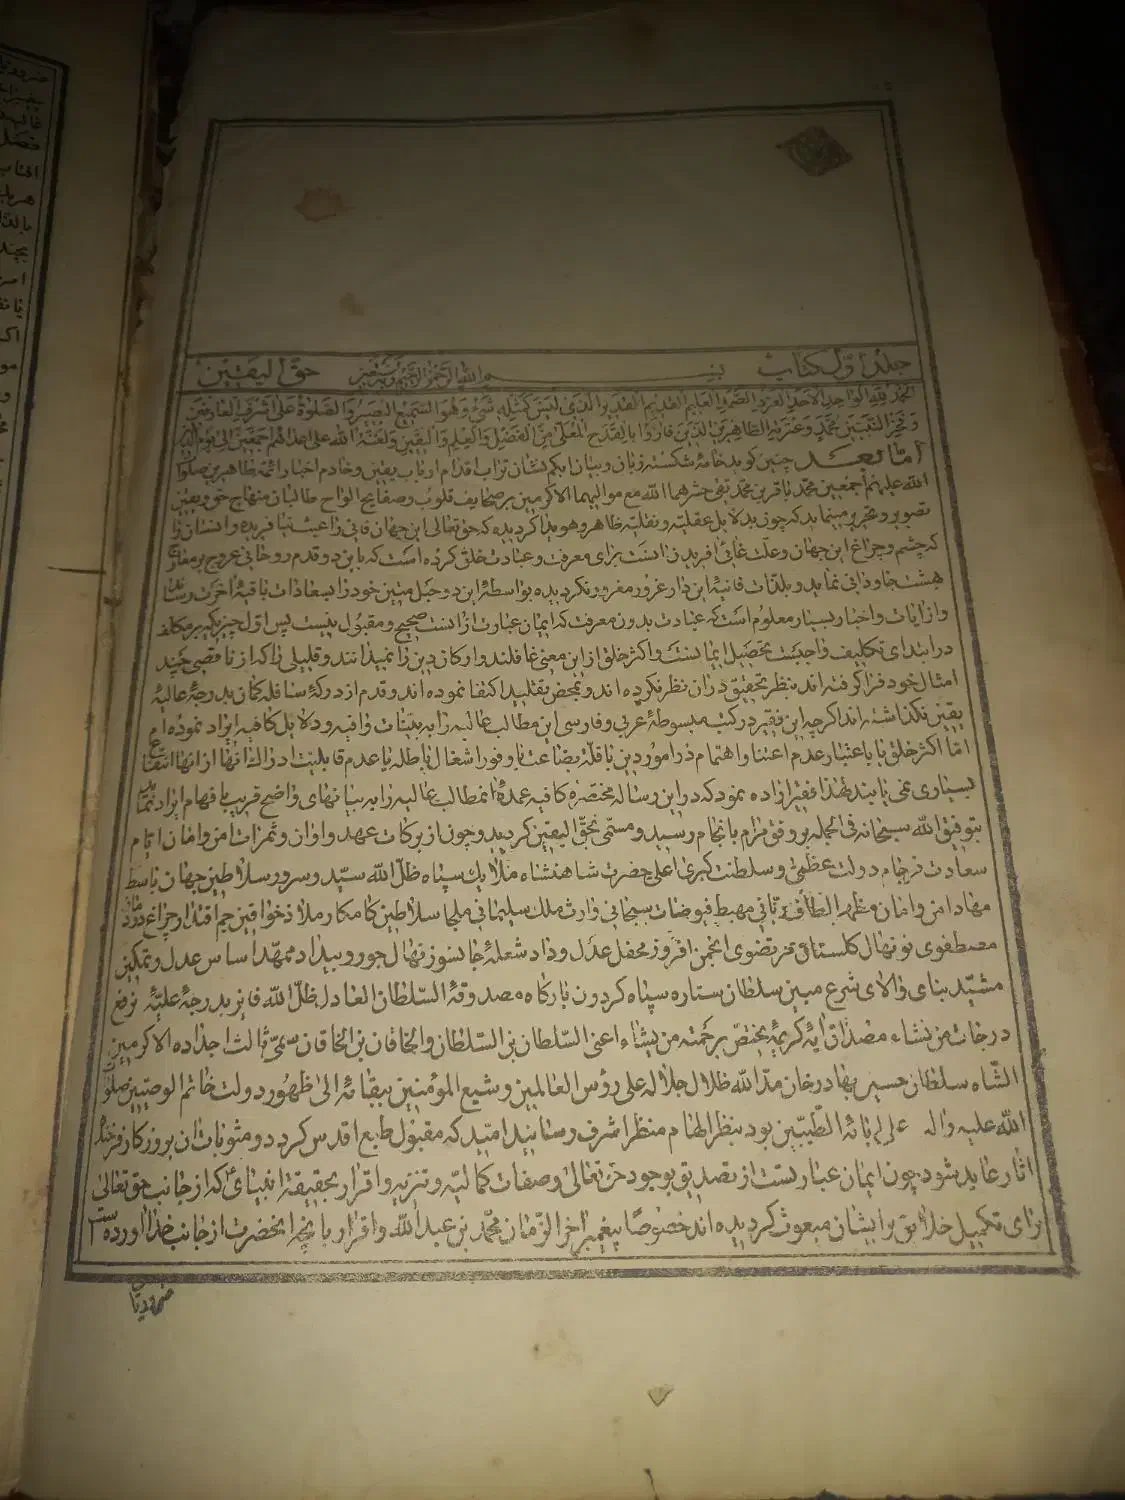 جلد اول کتاب بسم الله الرحمن الرحیم وبه نستعین حق الیقین
الحمد لله الواحد الاحد الفرد الصمد العلیم القدیم القدیر الذی لیس کمثله شیء وهو السمیع البصیر والصلوة علی اشرف العارفین
وفخر النبیین محمد وعترته الطاهرین الذین فازوا بالقدح المعلی من الفضل والعلم والیقین ولعنة الله علی اعدائهم اجمعین الی یوم الدین
اما بعد چنین کوید خامهٔ شکسته زبان وبیان ابکم نشان تراب اقدام ارباب یقین وخادم اخبار ائمهٔ طاهرین صلوات
الله علیهم اجمعین محمد باقر بن محمد تقی حشرهما الله مع موالیهما الاکرمین بر صحایف قلوب وصفایح الواح طالبان منهاج حق ویقین
تصویر وتحریر مینماید که چون بدلایل عقلیه ونقلیه ظاهر وهویدا کردیده که حق تعالی این جهان فانی را عبث نیافریده وانسان را
که چشم وچراغ این جهان وعلت غائی افریدن انست برای معرفت وعبادت خلق کرده است که باین دو قدم روحانی عروج بر معارج
بهشت جاودانی نماید وبلذات فانیهٔ این دار غرور مغرور نکردیده بواسطهٔ این دو حبل متین خود را بسعادات باقیهٔ اخرت رساند
واز ایات واخبار بسیار معلوم است که عبادت بدون معرفت که ایمان عبارت از انست صحیح ومقبول نیست پس اول چیزیکه بر مکلف
در ابتدای تکلیف واجبست تحصیل ایمانست واکثر خلق از این معنی غافلند وارکان دین را نمیدانند وقلیلی را که از ناقصی چند
امثال خود فرا کرفته اند بنظر تحقیق در ان نظر نکرده اند وبمحض تقلید اکتفا نموده اند وقدم از درکهٔ سافلهٔ کمان بدرجهٔ عالیهٔ
یقین نکذاشته اند اکرچه این فقیر در کتب مبسوطهٔ عربی وفارسی این مطالب عالیه را به بینات وافیه ودلایل کافیه ایراد نموده ام
اما اکثر خلق یا باعتبار عدم اعتنا واهتمام در امور دین یا قلة بضاعت یا وفور اشغال باطله یا عدم قابلیت ادراک انها از انها انتفاع
بسیاری نمی یابند لهذا فقیر اراده نمود که در این رساله مختصرهٔ کافیه عمدهٔ انمطالب عالیه را به بیانهای واضح قریب بافهام ایراد نماید
بتوفیق الله سبحانه فی الجمله بر وفق مرام بانجام رسید ومسمی بحق الیقین کردید وچون از برکات عهد واوان وثمرات امن وامان ایام
سعادت فرجام دولت عظمی وسلطنت کبری اعلی حضرت شاهنشاه ملایک سپاه ظل الله سید وسرور سلاطین جهان باسط
مهاد امن وامان مظهر الطاف ربانی مهبط فیوضات سبحانی وارث ملک سلیمانی ملجا سلاطین کامکار ملاذ خواقین جم اقتدار چراغ دودمان
مصطفوی نونهال کلستان مرتضوی انجمن افروز محفل عدل وداد شعلهٔ جانسوز نهال جور وبیداد ممهد اساس عدل وتمکین
مشید بنای والای شرع مبین سلطان ستاره سپاه کردون بارکاه مصدوقهٔ السلطان العادل ظل الله فایز بدرجهٔ علیهٔ نرفع
درجات من نشاء مصداق ایهٔ کریمهٔ یختص برحمته من یشاء اعنی السلطان بن السلطان والخاقان بن الخاقان سمی ثالث اجداده الاکرمین
الشاه سلطان حسین بهادر خان مد الله ظلال جلاله علی رؤس العالمین وشیع المؤمنین ببقائه الی ظهور دولت خاتم الوصیین صلوات
الله علیه واله وعلی ابائه الطیبین بود بنظر الهام منظر اشرف رسانید امید که مقبول طبع اقدس کردد ومثوبات ان بروزکار فرخنده
اثار عاید شود چون ایمان عبارتست از تصدیق بوجود حق تعالی وصفات کمالیه وتنزیه واقرار بحقیقة انبیائی که از جانب حق تعالی
برای تکمیل خلایق بر ایشان مبعوث کردیده اند خصوصا پیغمبر اخر الزمان محمد بن عبد الله واقرار بانچه انحضرت از جانب خدا اورده است